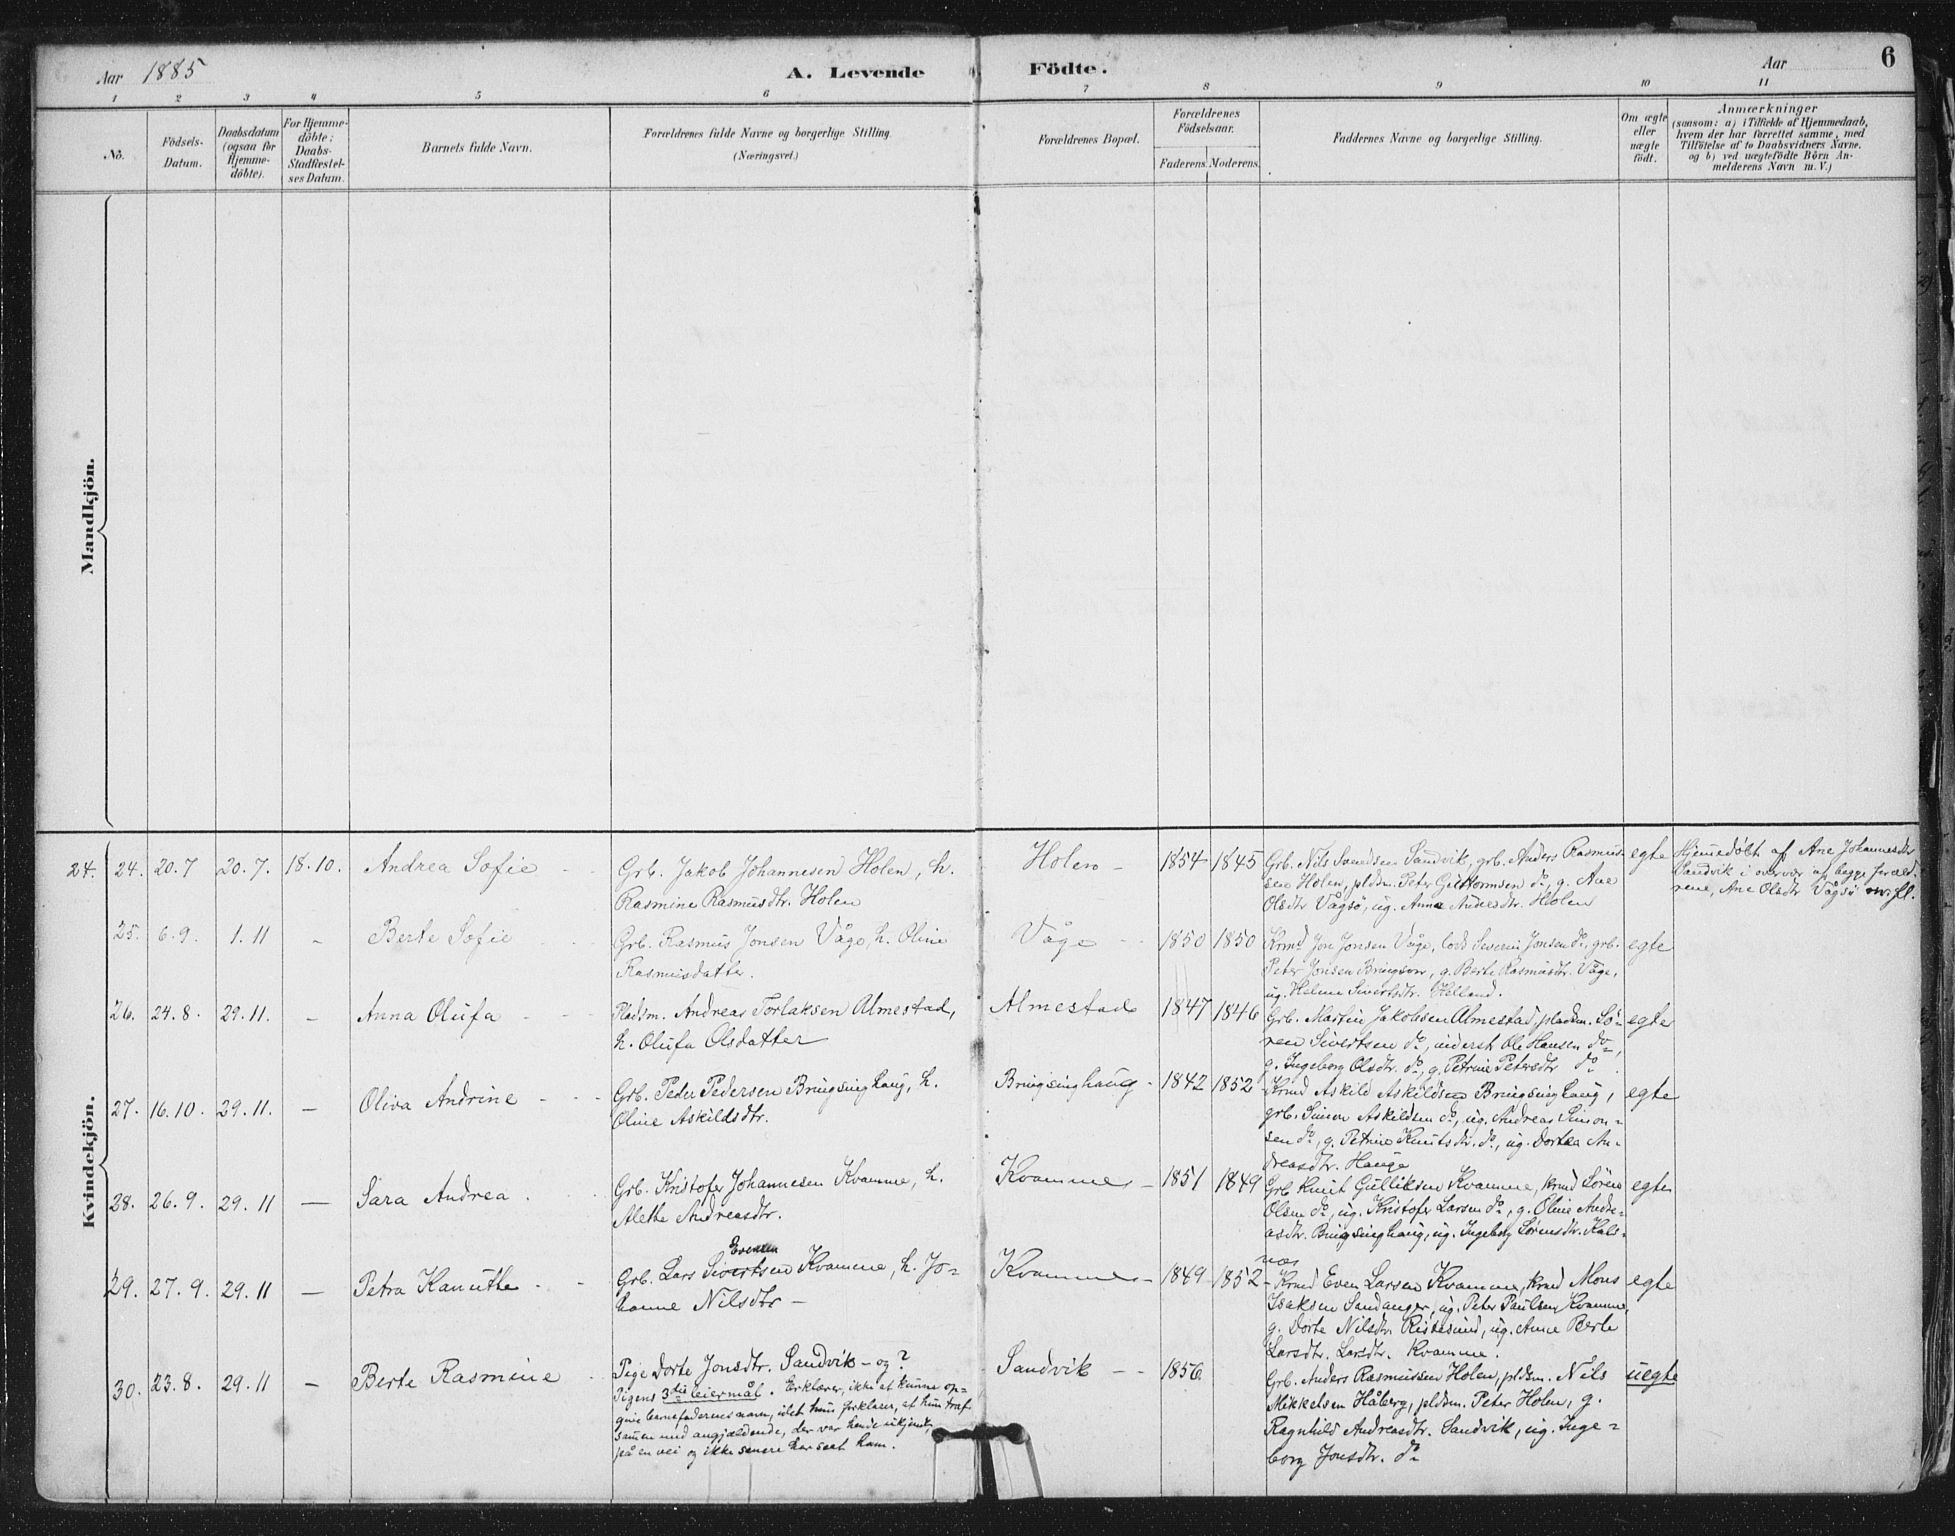 Aar 1885
A. Levende Födte.
Aar
6
1 2 3 4 5 6 7 8 9 10 11
No.
Födsels-
Datum.
Daabsdatum
(ogsaa for
Hjemme-
döbte).
For Hjemme-
döbte:
Daabs-
Stadfæstel-
ses Datum.
Barnets fulde Navn.
Forældrenes fulde Navne og borgerlige Stilling.
(Næringsvei.)
Forældrenes Bopæl.
Forældrenes
Födselsaar.
Faderens. Moderens.
Faddernes Navne og borgerlige Stilling.
Om ægte
eller
uægte
födt.
Anmærkninger
(saasom: a) i Tilfælde af Hjemmedaab,
hvem der har forrettet samme, med
Tilföielse af to Daabsvidners Navne,
og b) ved uægtefödte Börn An-
melderens Navn m.V.)
Mandkjön.
Kvindekjön.
24. 24. 20.7 20.7. 18.10. Andrea Sofie
Grb. Jakob Johannesen Holen, h.
Rasmine Rasmusdtr. Holen
Holen 1854 1845
Grb. Nils Svendsen Sandvik, grb. Anders Rasmus-
sen Holen, pldsm. Peter Guttormsen do, g. Ane
Olsdtr Vågsø, ug. Anne Andersdtr. Holen
egte
Hjemedøbt af Ane Johannesdtr
Sandvik i overvær af begge foræld-
rene, Ane Olsdtr Vågsø
25. 6.9. 1.11 - Berte Sofie
Grb. Rasmus Jonsen Våge, h. Oline
Rasmusdatter.
Våge 1850 1850
Krmd Jon Jonsen Våge, lods Severin Jonsen do, grb.
Peter Jonsen Bringsvor, g. Berte Rasmusdtr. Våge,
ug. Helene Sivertsdtr. Helland.
egte
26. 24.8. 29.11. - Anna Olufa
Pladsm. Andreas Torlaksen Almestad,
h. Olufa Olsdatter
Almestad 1847 1846
Grb. Martin Jakobsen Almestad, pladsm. Sø-
ren Sivertsen do, inderst Ole Hansen do,
g. Ingeborg Olsdtr. do, g. Petrine Petersdtr do
egte
27. 16.10. 29.11. - Oliva Andrine
Grb. Peder Pedersen Bringsinghaug, h.
Oline Askildsdtr.
Bringsinghaug 1842 1852
Krmd Askild Askildsen Bringsinghaug,
grb. Simon Askildsen do, ug. Andreas Simon-
sen do, g. Petrine Knutsdtr. do, ug. Dortea An-
dreasdtr. Hauge
egte
28. 26.9. 29.11 - Sara Andrea
Grb. Kristofer Johannesen Kvamme, h.
Alethe Andreasdtr.
Kvamme 1851 1849
Grb Knut Gulliksen Kvamme, krmd Søren
Olsen do, ug. Kristofer Larsen do, g. Oline Andre-
asdtr. Bringsinghaug, ug. Ingeborg Sørensdtr. Kals-
nes
egte
29. 27.9. 29.11 - Petra Kanutte
Evensen
Grb. Lars Sivertsen Kvamme, h. Jo-
hanne Nilsdtr -
Kvamme 1849 1852
Krmd Even Larsen Kvamme, krmd Mons
Isaksen Sandanger, ug. Peter Paulsen Kvamme,
g. Dorte Nilsdtr. Ristesund, ug. Anne Berte
Larsdtr. Larsdtr. Kvamme.
egte
30. 23.8. 29.11 - Berte Rasmine
Pige Dorte Jonsdtr. Sandvik - og?
Pigens 3die leiermål. Erklærer ikke at kunne op-
give barnefaderens navn, idet hun forklarer, at hun traf
samen med angjældende, der var hende ukjendt,
på en vei og ikke senere har seet ham.
Sandvik 1856
Grb. Anders Rasmussen Holen, pldsm. Nils
Mikkelsen Håberg, pldsm. Peter Holen, g.
Ragnhild Andreasdtr. Sandvik, ug. Inge-
borg Jonsdtr. do
uegte